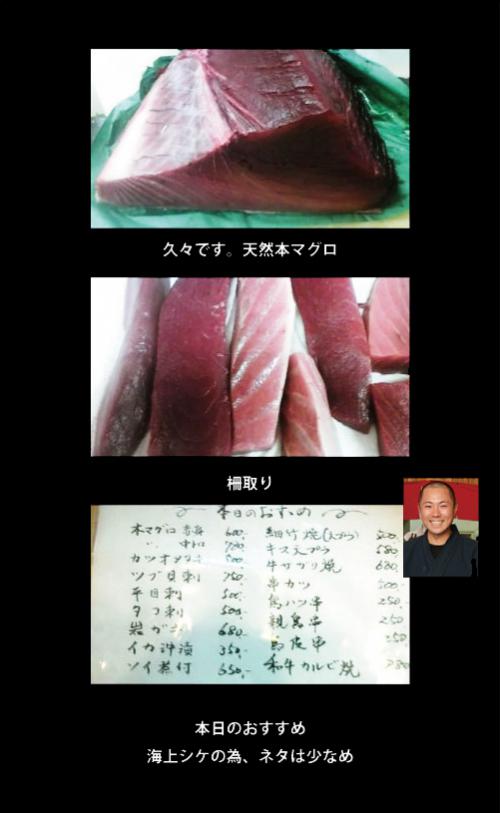 久々です。天然本マグロ
柵取り
本日のおすすめ
本マグロ 赤身 600.
〃 中トロ 700.
カツオタタキ 500.
ツブ貝刺 750.
平目刺 500.
タコ刺 500.
岩ガキ 680.
イカ沖漬 350.
ソイ煮付 650.
細竹焼(天プラ) 500.
キス天プラ 580.
牛サガリ焼 680.
串カツ 500.
鳥ハツ串 250.
親鳥串 250
鳥皮串 250
和牛カルビ焼
本日のおすすめ
海上シケの為、ネタは少なめ